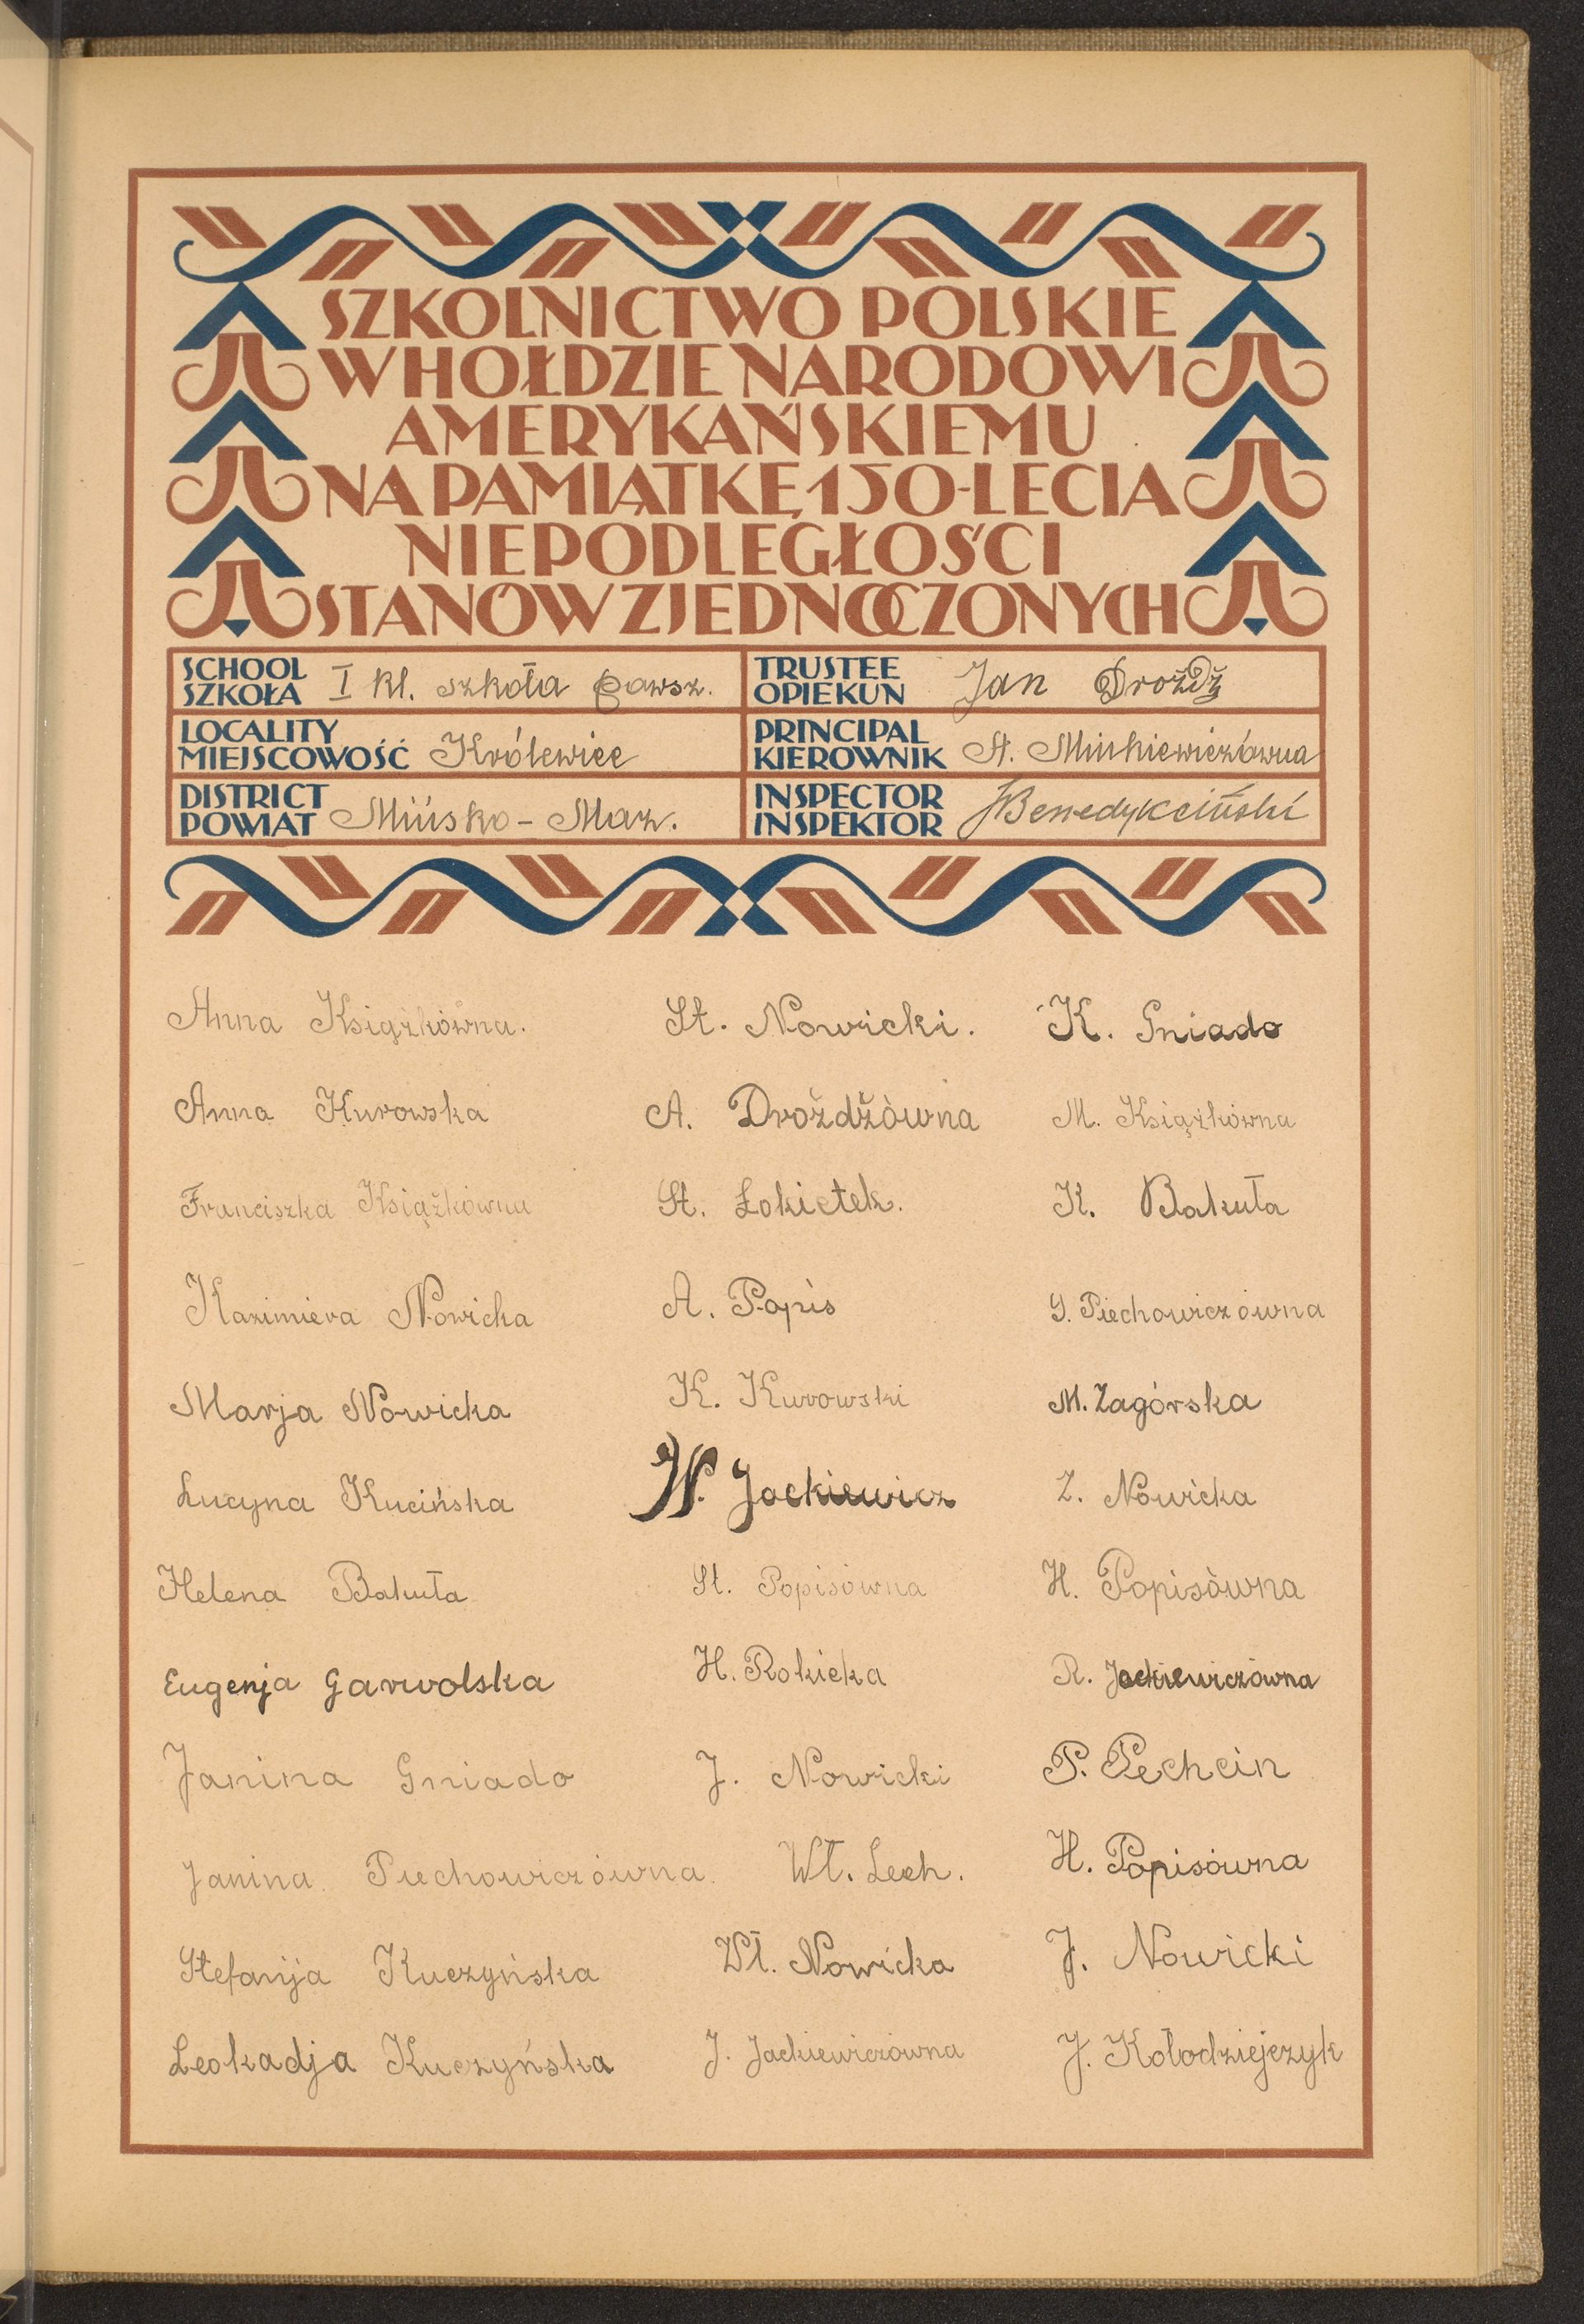 SZKOLNICTWO POLSKIE
W HOŁDZIE NARODOWI
AMERYKAŃSKIEMU
NA PAMIĄTKĘ 150-LECIA
NIEPODLEGŁOŚCI
STANÓW ZJEDNOCZONYCH
SCHOOL
SZKOŁA I kl. szkoła powsz.
TRUSTEE
OPIEKUN Jan Drożdż
LOCALITY
MIEJSCOWOŚĆ Królewiec
PRINCIPAL
KIEROWNIK St. Minkiewiczówna
DISTRICT
POWIAT Mińsko-Maz.
INSPECTOR
INSPEKTOR Benedykciński
Anna Książkówna.
Anna Kurowska
Franciszka Książkówna
Kazimiera Nowicka
Marja Nowicka
Lucyna Kucińska
Helena Bakuła
Eugenja Garwolska
Janina Gniado
Janina Piechowiczówna
Stefanja Kuczyńska
Leokadja Kuczyńska
St. Nowicki.
A. Drożdżówna
St. Łokietek.
A. Popis
K. Kurowski
W. Jackiewicz
St. Popisówna
H. Rokicka
J. Nowicki
Wł. Lech.
Wł. Nowicka
J. Jackiewiczówna
K. Gniado
M. Książkówna
K. Bakuła
G. Piechowiczówna
M. Zagórska
Z. Nowicka
H. Popisówna
R. Jackiewiczówna
P. Pechcin
H. Popisówna
J. Nowicki
J. Kołodziejczyk